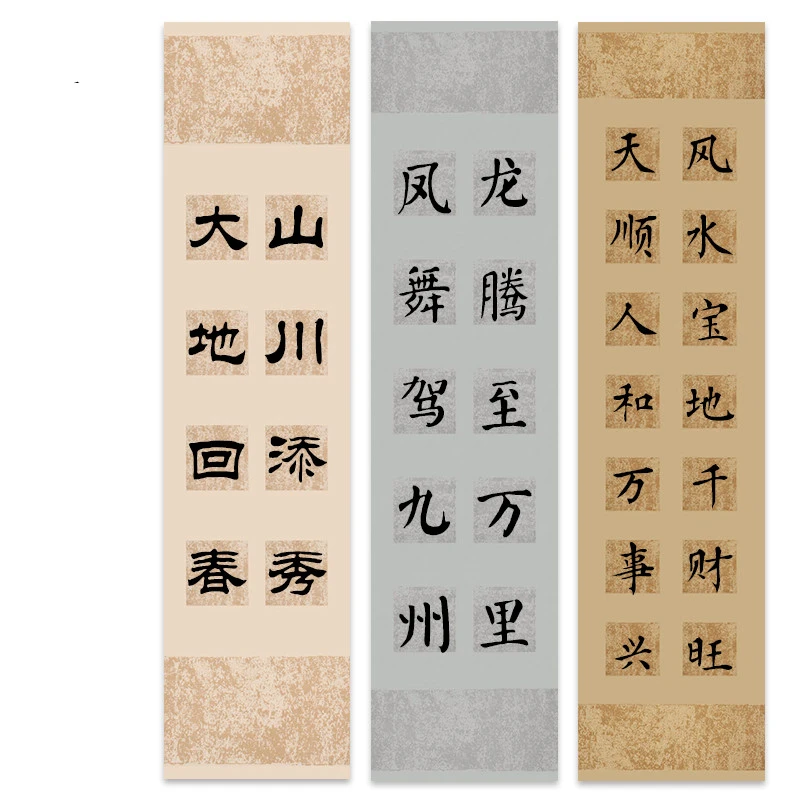 山川添秀
大地回春
龙腾至万里
凤舞驾九州
风水宝地千财旺
天顺人和万事兴